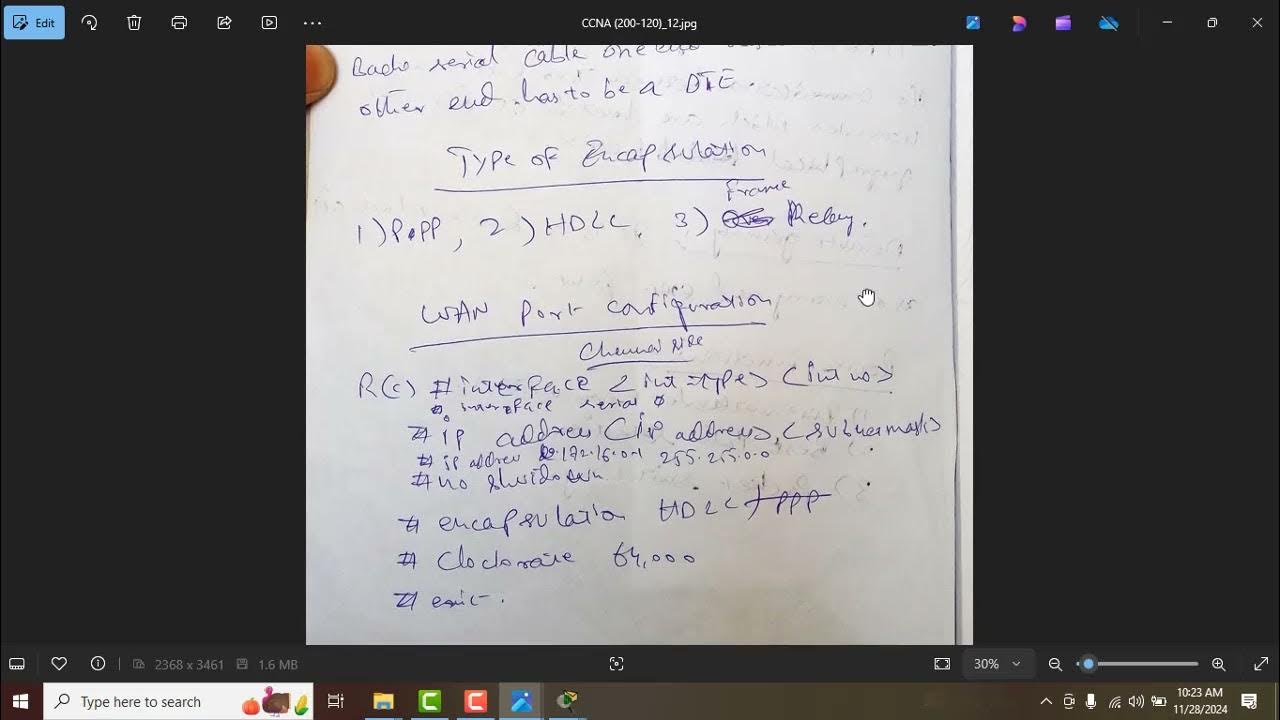 Edit
CCNA (200-120)_12.jpg
Back serial cable one end
other end has to be a DTE.
Type of Encapsulation
Frame
1) P.PP, 2) HDLC, 3) Relay.
WAN Port configuration
Channel
R(c) # interface <int types> <int no>
#. interface serial 0
# ip address <ip address> <subnet mask>
# ip address 172.16.0.1 255.255.0.0
# no shutdown
# encapsulation HDLC / PPP
# Clockrate 64,000
# exit.
2368 x 3461 1.6 MB
30%
Type here to search
10:23 AM
11/28/2024